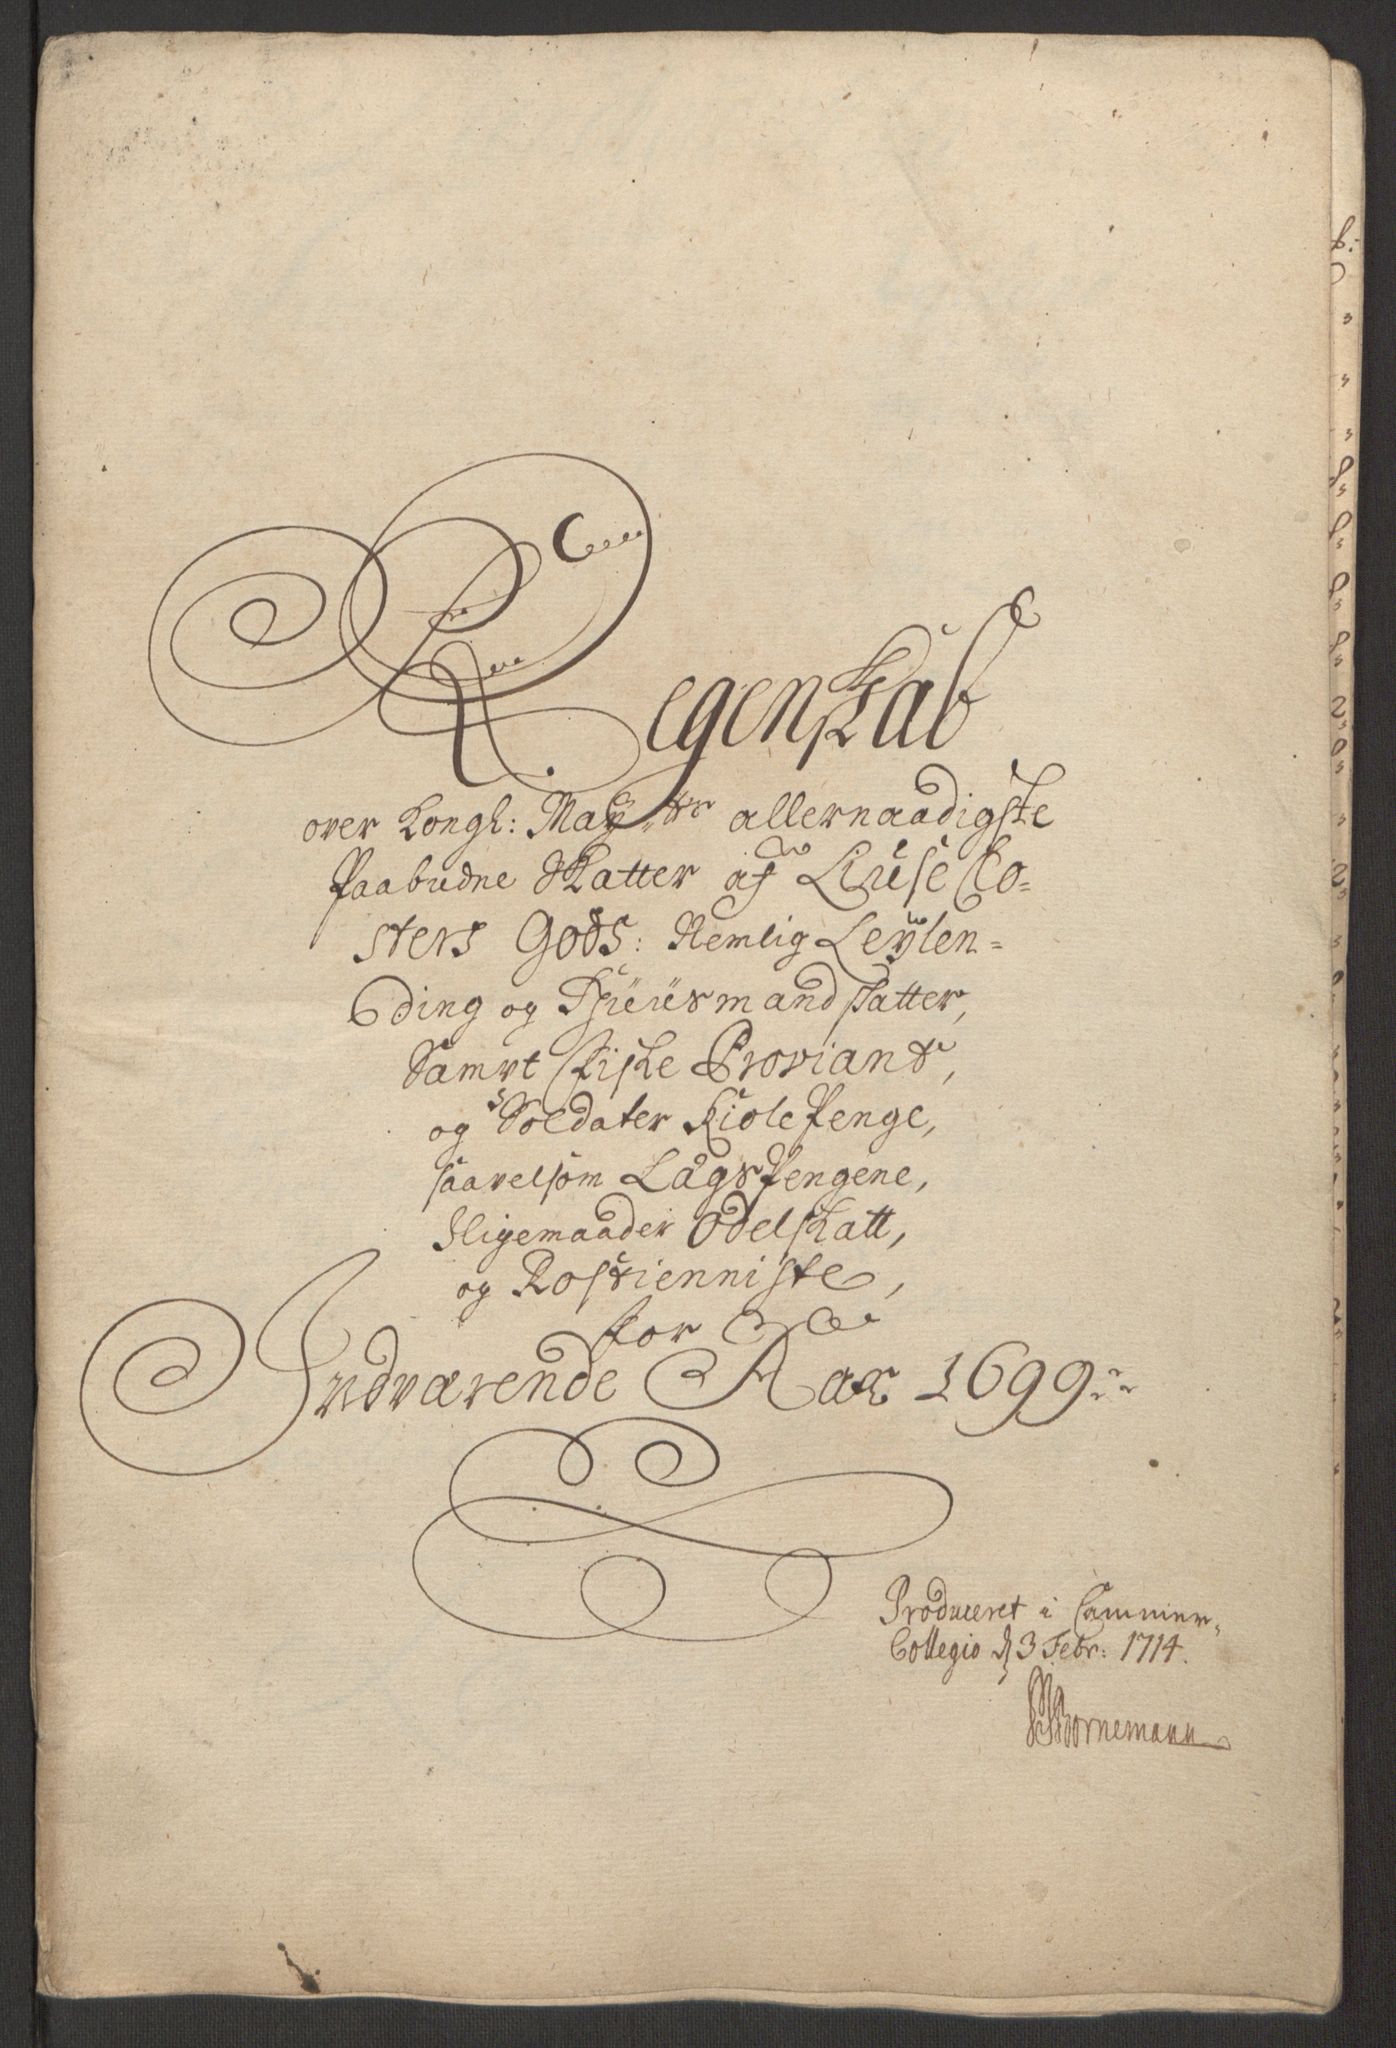 Regenskab
over Kongl: May.tts allernaadigste
Paabudne Skatter af Liuse Clo=
sters Gods: Nemlig Leÿlen=
ding og Huusmandskatter,
Samvt Fiske Proviant,
og Soldater Kiole Penge,
saavelsom LagsPengene,
Sligemaader Odelskatt,
og Rostienniste,
for
Indværende Aar 1699
Produceret i Cammer-
Collegio d 3 Febr: 1714.
Bornemann